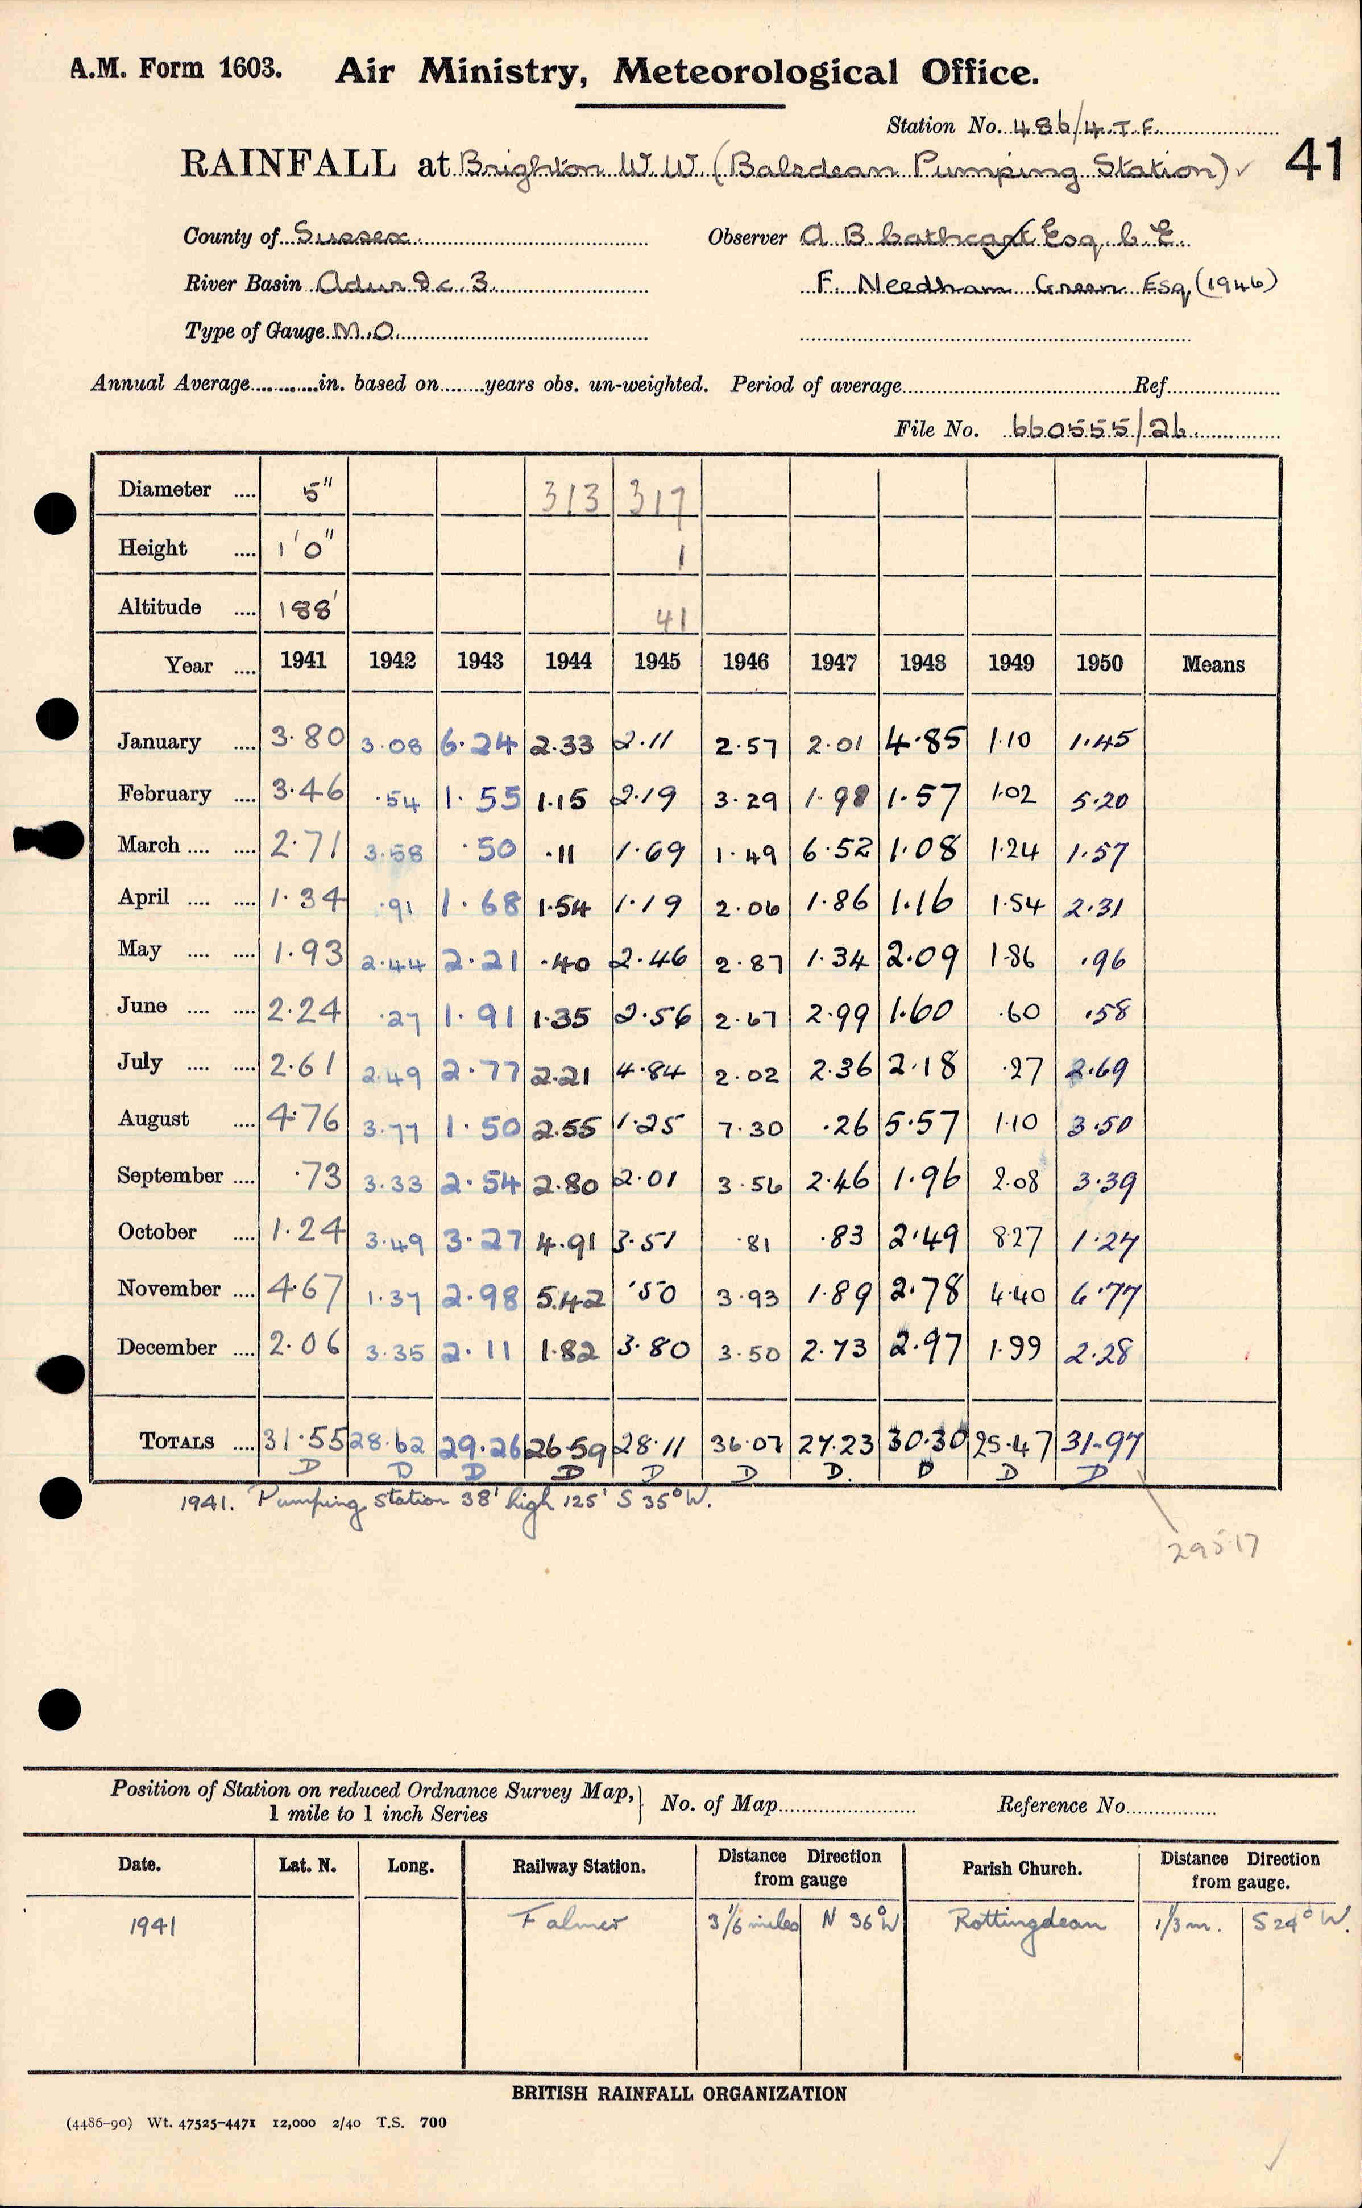 A.M. Form 1603. Air Ministry, Meteorological Office.
Station No. 486/4.T.F.
RAINFALL at Brighton W.W. (Balsdean Pumping Station) ✓ 41
County of Sussex Observer A B Cathcart Esq. C.E.
River Basin Adur &c. 3. F. Needham Green Esq. (1946)
Type of Gauge M.O.
Annual Average............in. based on.......years obs. un-weighted. Period of average............ Ref............
File No. 660555/26
Diameter .... 5" 313 317
Height .... 1'0" 1
Altitude .... 188' 41
Year .... 1941 1942 1943 1944 1945 1946 1947 1948 1949 1950 Means
January .... 3.80 3.08 6.24 2.33 2.11 2.57 2.01 4.85 1.10 1.45
February .... 3.46 .54 1.55 1.15 2.19 3.29 1.98 1.57 1.02 5.20
March .... .... 2.71 3.58 .50 .11 1.69 1.49 6.52 1.08 1.24 1.57
April .... .... 1.34 .91 1.68 1.54 1.19 2.06 1.86 1.16 1.54 2.31
May .... .... 1.93 2.44 2.21 .40 2.46 2.87 1.34 2.09 1.86 .96
June .... .... 2.24 .27 1.91 1.35 2.56 2.67 2.99 1.60 .60 .58
July .... .... 2.61 2.49 2.77 2.21 4.84 2.02 2.36 2.18 .27 2.69
August .... 4.76 3.77 1.50 2.55 1.25 7.30 .26 5.57 1.10 3.50
September .... .73 3.33 2.54 2.80 2.01 3.56 2.46 1.96 2.08 3.39
October .... 1.24 3.49 3.27 4.91 3.51 .81 .83 2.49 8.27 1.27
November .... 4.67 1.37 2.98 5.42 .50 3.93 1.89 2.78 4.40 6.77
December .... 2.06 3.35 2.11 1.82 3.80 3.50 2.73 2.97 1.99 2.28
TOTALS .... 31.55 28.62 29.26 26.59 28.11 36.07 27.23 30.30 25.47 31.97
D D D D D D D. D D D
1941. Pumping station 38' high 125' S 35° W.
29517
Position of Station on reduced Ordnance Survey Map, } No. of Map............ Reference No............
1 mile to 1 inch Series
Date. Lat. N. Long. Railway Station. Distance Direction from gauge Parish Church. Distance Direction from gauge.
1941 Falmer 3 1/6 miles N 36° W Rottingdean 1 1/3 m. S 24° W.
BRITISH RAINFALL ORGANIZATION
(4486-90) Wt. 47525-4471 12,000 2/40 T.S. 700